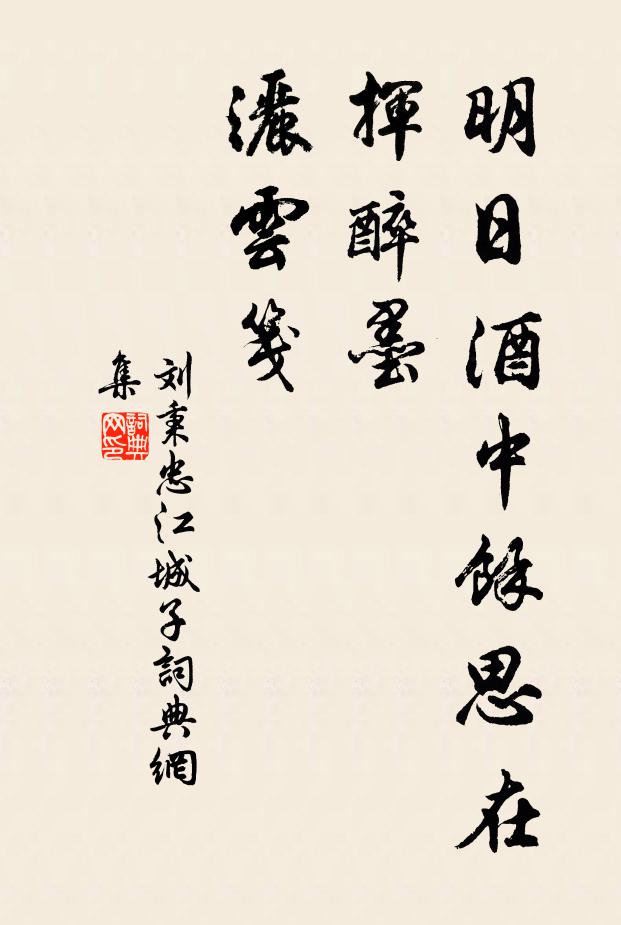 明日酒中餘思在
揮醉墨
灑雲箋
刘秉忠江城子詞典網
集
詞典
网印